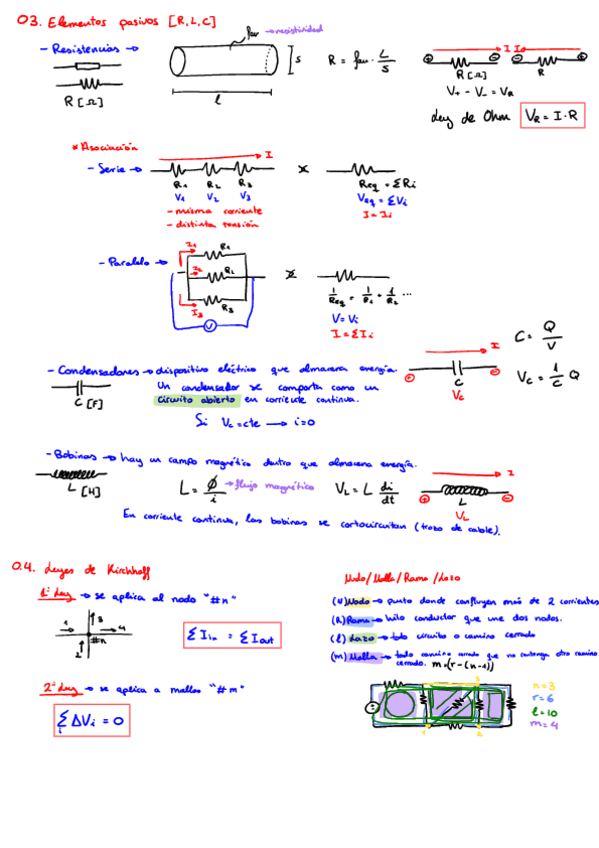 03. Elementos pasivos [R,L,C]
- Resistencias →
R [Ω]
ρ → resistividad
l
S
R = ρ · L/S
I
R [Ω]
R
V+ - V- = VR
Ley de Ohm
VR = I·R
* Asociación
- Serie →
I
R1 R2 R3
V1 V2 V3
- misma corriente
- distinta tensión
Req = ΣRi
Veq = ΣVi
I = Ii
- Paralelo →
I1 R1
I2 R2
I3 R3
V
1/Req = 1/R1 + 1/R2 ...
V = Vi
I = ΣIi
- Condensadores → dispositivo eléctrico que almacena energía.
Un condensador se comporta como un
circuito abierto en corriente continua.
C [F]
Si Vc = cte → i=0
I
C
Vc
C = Q/V
Vc = 1/C Q
- Bobinas → hay un campo magnético dentro que almacena energía.
L [H]
L = ϕ/i → flujo magnético
VL = L di/dt
I
L
VL
En corriente continua, las bobinas se cortocircuitan (trozo de cable).
0.4. Leyes de Kirchhoff
1ª Ley → se aplica al nodo "#n"
1 3 4
2 #n
Σ Iin = Σ Iout
2ª Ley → se aplica a mallas "#m"
Σi ΔVi = 0
Nudo/Malla/Rama/Lazo
(n) Nodo → punto donde confluyen más de 2 corrientes
(r) Rama → hilo conductor que une dos nodos.
(l) Lazo → todo circuito o camino cerrado
(m) Malla → todo camino cerrado que no contenga otro camino
cerrado. m=(r-(n-1))
3
1 2
n=3
r=6
l=10
m=4